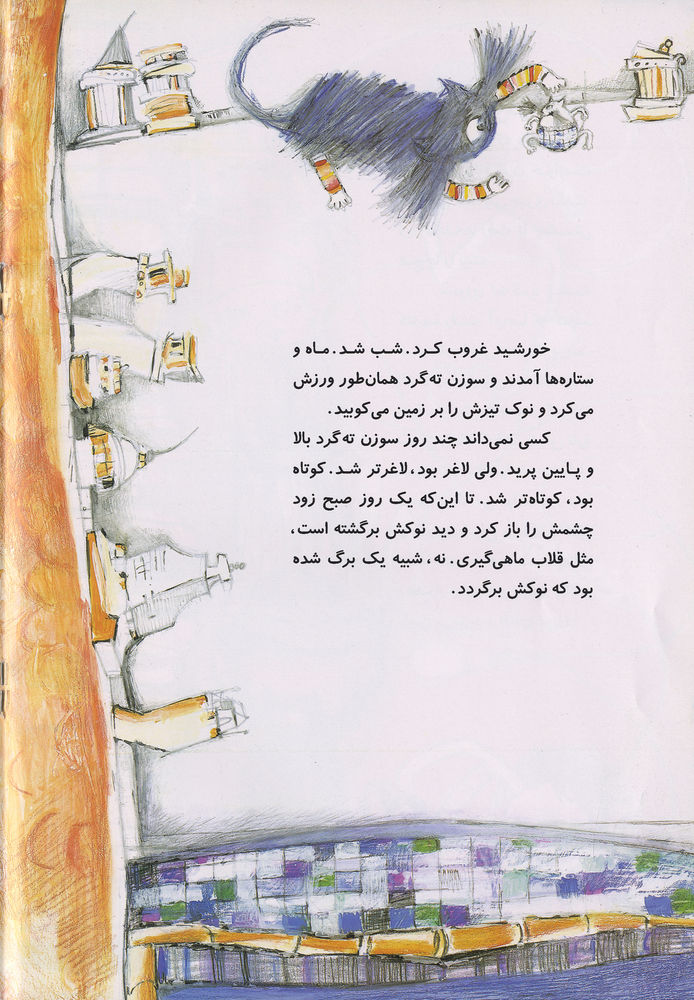 خورشید غروب کرد. شب شد. ماه و
ستاره‌ها آمدند و سوزن ته‌گرد همان‌طور ورزش
می‌کرد و نوک تیزش را بر زمین می‌کوبید.
کسی نمی‌داند چند روز سوزن ته‌گرد بالا
و پایین پرید. ولی لاغر بود، لاغرتر شد. کوتاه
بود، کوتاه‌تر شد. تا این‌که یک روز صبح زود
چشمش را باز کرد و دید نوکش برگشته است،
مثل قلاب ماهی‌گیری. نه، شبیه یک برگ شده
بود که نوکش برگردد.